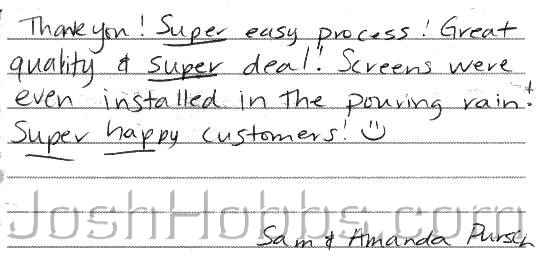 Thank you! Super easy process! Great
quality & super deal! Screens were
even installed in the pouring rain!
Super happy customers! ☺
JoshHobbs.com
Sam & Amanda Pursch